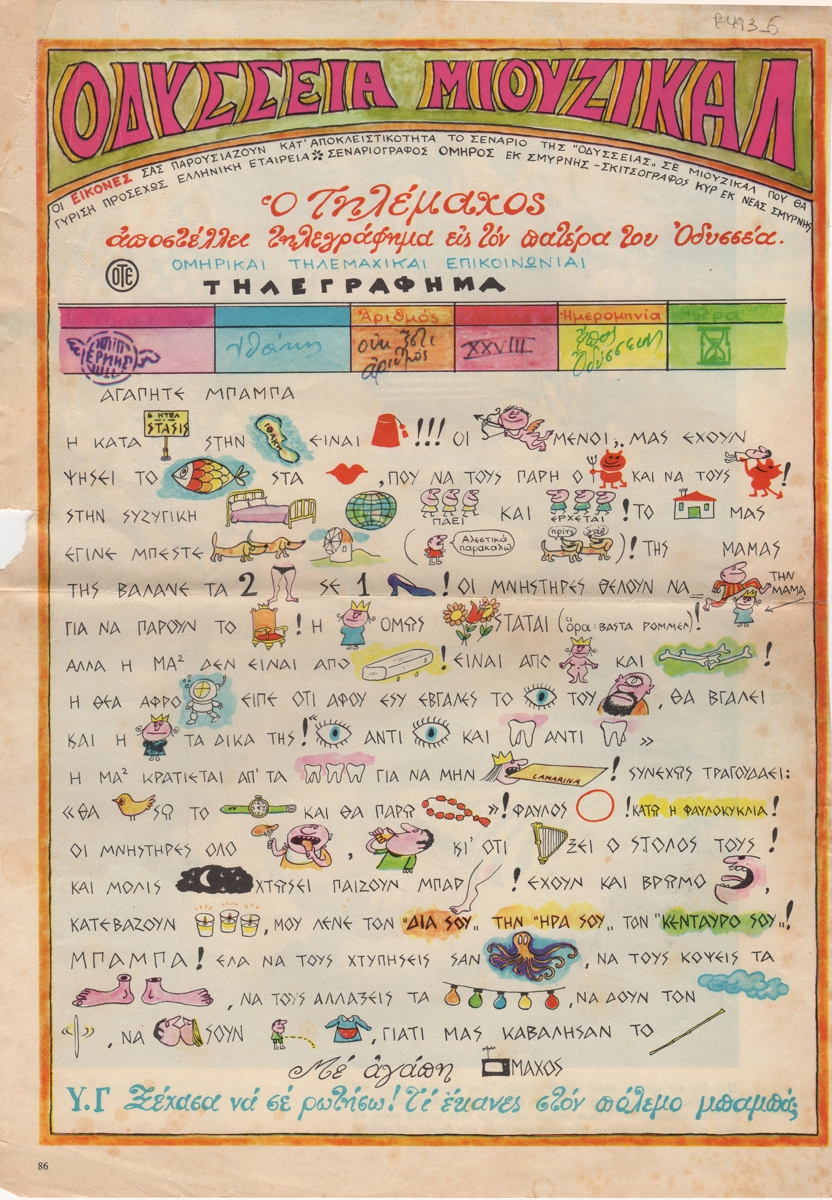 P493_6
ΟΔΥΣΣΕΙΑ ΜΙΟΥΖΙΚΑΛ
ΟΙ ΕΙΚΟΝΕΣ ΣΑΣ ΠΑΡΟΥΣΙΑΖΟΥΝ ΚΑΤ' ΑΠΟΚΛΕΙΣΤΙΚΟΤΗΤΑ ΤΟ ΣΕΝΑΡΙΟ ΤΗΣ "ΟΔΥΣΣΕΙΑΣ„ ΣΕ ΜΙΟΥΖΙΚΑΛ ΠΟΥ ΘΑ
ΓΥΡΙΣΗ ΠΡΟΣΕΧΩΣ ΕΛΛΗΝΙΚΗ ΕΤΑΙΡΕΙΑ * ΣΕΝΑΡΙΟΓΡΑΦΟΣ ΟΜΗΡΟΣ ΕΚ ΣΜΥΡΝΗΣ - ΣΚΙΤΣΟΓΡΑΦΟΣ ΚΥΡ ΕΚ ΝΕΑΣ ΣΜΥΡΝΗΣ
Ὁ Τηλέμαχος
ἀποστέλλει τηλεγράφημα εἰς τόν πατέρα του Ὀδυσσέα.
ΟΜΗΡΙΚΑΙ ΤΗΛΕΜΑΧΙΚΑΙ ΕΠΙΚΟΙΝΩΝΙΑΙ
ΟΤΕ
ΤΗΛΕΓΡΑΦΗΜΑ
Ἀριθμός Ἡμερομηνία
ΕΡΜΗΣ Ἰθάκη οὐκ ἔστι ἀριθμός XXVIII
ΑΓΑΠΗΤΕ ΜΠΑΜΠΑ
6 ΚΤΕΛ
Η ΚΑΤΑ STASIS ΣΤΗΝ ΙΘΑΚΗ ΕΙΝΑΙ !!! ΟΙ ΜΕΝΟΙ,, ΜΑΣ ΕΧΟΥΝ
ΨΗΣΕΙ ΤΟ ΣΤΑ , ΠΟΥ ΝΑ ΤΟΥΣ ΠΑΡΗ Ο ΚΑΙ ΝΑ ΤΟΥΣ !
ΣΤΗΝ ΣΥΖΥΓΙΚΗ ΠΑΕΙ ΚΑΙ ΕΡΧΕΤΑΙ! ΤΟ ΜΑΣ
ΕΓΙΝΕ ΜΠΕΣΤΕ ( Ἀλεστικά παρακαλῶ πρίτς γάβ )! ΤΗΣ ΜΑΜΑΣ
ΤΗΣ ΒΑΛΑΝΕ ΤΑ 2 ΣΕ 1 ! ΟΙ ΜΝΗΣΤΗΡΕΣ ΘΕΛΟΥΝ ΝΑ ΤΗΝ ΜΑΜΑ
ΓΙΑ ΝΑ ΠΑΡΟΥΝ ΤΟ ! Η ΟΜΩΣ ΣΤΑΤΑΙ (ὅρα: BASTA ROMMEL)!
ΑΛΛΑ Η ΜΑ² ΔΕΝ ΕΙΝΑΙ ΑΠΟ ! ΕΙΝΑΙ ΑΠΟ ΚΑΙ !
Η ΘΕΑ ΑΦΡΟ ΕΙΠΕ ΟΤΙ ΑΦΟΥ ΕΣΥ ΕΒΓΑΛΕΣ ΤΟ ΤΟΥ , ΘΑ ΒΓΑΛΕΙ
ΚΑΙ Η ΤΑ ΔΙΚΑ ΤΗΣ! " ΑΝΤΙ ΚΑΙ ΑΝΤΙ »
Η ΜΑ² ΚΡΑΤΙΕΤΑΙ ΑΠ' ΤΑ ΓΙΑ ΝΑ ΜΗΝ LAMARINA ! ΣΥΝΕΧΩΣ ΤΡΑΓΟΥΔΑΕΙ:
«ΘΑ ΣΩ ΤΟ ΚΑΙ ΘΑ ΠΑΡΩ »! ΦΑΥΛΟΣ ! ΚΑΤΩ Η ΦΑΥΛΟΚΥΚΛΙΑ!
ΟΙ ΜΝΗΣΤΗΡΕΣ ΟΛΟ , ΚΙ' ΟΤΙ ΞΕΙ Ο ΣΤΟΛΟΣ ΤΟΥΣ!
ΚΑΙ ΜΟΛΙΣ ΧΤΩΣΕΙ ΠΑΙΖΟΥΝ ΜΠΑΡ ! ΕΧΟΥΝ ΚΑΙ ΒΡΩΜΟ ,
ΚΑΤΕΒΑΖΟΥΝ , ΜΟΥ ΛΕΝΕ ΤΟΝ "ΔΙΑ ΣΟΥ„ ΤΗΝ "ΗΡΑ ΣΟΥ„ ΤΟΝ "ΚΕΝΤΑΥΡΟ ΣΟΥ„!
ΜΠΑΜΠΑ! ΕΛΑ ΝΑ ΤΟΥΣ ΧΤΥΠΗΣΕΙΣ ΣΑΝ , ΝΑ ΤΟΥΣ ΚΟΨΕΙΣ ΤΑ
, ΝΑ ΤΟΥΣ ΑΛΛΑΞΕΙΣ ΤΑ , ΝΑ ΔΟΥΝ ΤΟΝ
, ΝΑ ΣΟΥΝ , ΓΙΑΤΙ ΜΑΣ ΚΑΒΑΛΗΣΑΝ ΤΟ
Μέ ἀγάπη ΜΑΧΟΣ
Υ.Γ Ξέχασα νά σέ ρωτήσω! Τί ἔκανες στόν πόλεμο μπαμπάς
86